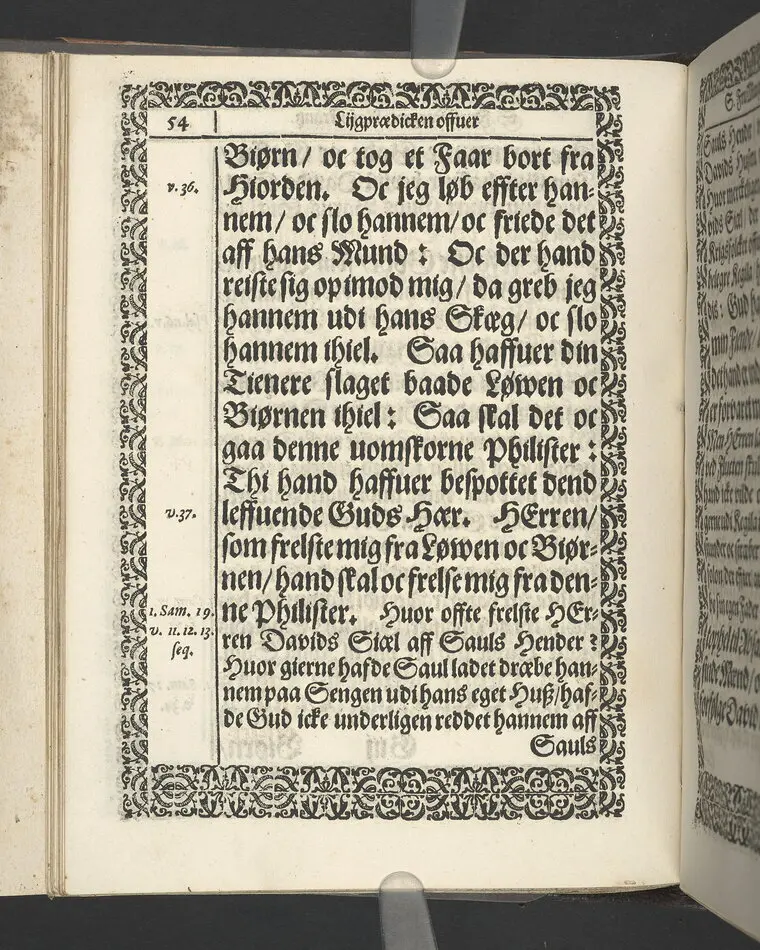 54
Lijgprædicken offuer
Biørn / oc tog et Faar bort fra
v. 36.
Hiorden. Oc jeg løb effter han-
nem / oc slo hannem / oc friede det
aff hans Mund : Oc der hand
reiste sig op imod mig / da greb jeg
hannem udi hans Skæg / oc slo
hannem ihiel. Saa haffuer din
Tienere slaget baade Løwen oc
Biørnen ihiel : Saa skal det oc
gaa denne uomskorne Philister :
Thi hand haffuer bespottet dend
v. 37.
leffuende Guds Hær. HErren /
som frelste mig fra Løwen oc Biør-
nen / hand skal oc frelse mig fra den-
1. Sam. 19.
v. 11. 12. 13.
seq.
ne Philister. Huor offte frelste HEr-
ren Davids Siæl aff Sauls Hender ?
Huor gierne hafde Saul ladet dræbe han-
nem paa Sengen udi hans eget Huß / haf-
de Gud icke underligen reddet hannem aff
Sauls